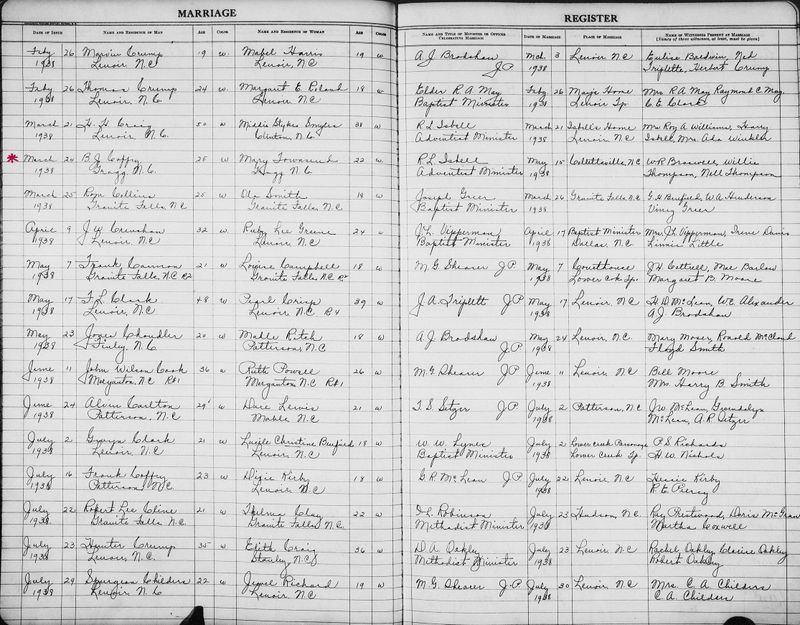 MARRIAGE
REGISTER
Date of Issue Name and Residence of Man Age Color Name and Residence of Woman Age Color Name and Title of Minister or Officer Celebrating Marriage Date of Marriage Place of Marriage Name of Witnesses Present at Marriage
(Names of three witnesses, at least, must be given)
Feby 26 Marvin Crump 19 w. Mabel Harris 19 w A J Bradshaw Mch 3 Lenoir N C Eulise Baldwin, Ned
1938 Lenoir N.C Lenoir, N.C J P 1938 Triplette, Herbert Crump
Feby 26 Thomas Crump 24 w. Margaret E. 18 w Elder R A May Feby 26 Mays Home Mrs R A May Raymond C May
1938 Lenoir, N. C. Lenoir N C Baptist Minister 1938 Lenoir Tp. C E Clark
March 21 H. H. Craig 50 w Middie Stykes 38 w R L Isbell March 21 Isbells Home Mrs Roy A Williams, Harry
1938 Lenoir N.C. Clinton, N.C. Adventist Minister 1938 Lenoir N.C Isbell, Mrs Ada Winkler
March 24 B J Coffey 25 w Mary Townsend 22 w R L Isbell May 15 Collettsville, N.C W R Braswell, Willie
1938 Gragg N.C. Gragg N.C Adventist Minister 1938 Thompson, Nell Thompson
March 25 Rom Collins 25 w Ola Smith 18 w Joseph Greer March 26 Granite Falls N.C G H Benfield, W A Henderson
1938 Granite Falls, N.C Granite Falls, N.C Baptist Minister 1938 Greer
April 9 J W Crenshaw 32 w Ruby Lee Greene 24 w J L Vipperman April 17 Baptist Minister Mrs. J L Vipperman, Irene Davis
1938 Lenoir, N.C Lenoir N.C Baptist Minister 1938 Dallas N.C Linnie Little
May 7 Frank Cannon 21 w Louise Campbell 18 w M G Shearer J P May 7 Courthouse J H Cottrell, Mae Barlow
1938 Granite Falls, N.C R2 Granite Falls, N C R2 1938 Lower Crk Tp. Margaret B. Moore
May 17 F L Clark 48 w Pearl Crisp 39 w J A Triplett J P May 17 Lenoir, N.C H D McLean, W E Alexander
1938 Lenoir, N.C Lenoir N.C R4 1938 A J Bradshaw
May 23 Joyce Chandler 20 w Malle Ritch 18 w A J Bradshaw May 24 Lenoir, N.C. Mary Moser, Ronald McCloud
1938 Finley, N.C Patterson, N.C J P 1938 Floyd Smith
June 11 John Wilson Cook 36 w Ruth Powell 26 w M G Shearer J P June 11 Lenoir, N.C Bill Moore
1938 Morganton, N.C Rt1 Morganton, N.C Rt1 1938 Mrs. Harry B Smith
June 24 Alvin Carlton 29 w Dare Lewis 21 w T. S. Setzer J P July 2 Patterson, N.C J W McLean, Gwendolyn
1938 Patterson, N.C Mable N.C 1938 McLean, A. R. Setzer
July 2 Gwyn Clark 21 w Lucile Christine Benfield 18 w W. W. Lynes July 2 Lower Creek Parsonage P. S. Richards
1938 Lenoir, N.C Lenoir N.C Baptist Minister 1938 Lower Creek Tp. H. W. Nichols
July 16 Frank Coffey 23 w Dixie Kirby 18 w G R McLean J P July 22 Lenoir, N.C Kirby
1938 Patterson, N.C. Lenoir N.C 1938 R. E. Piercy
July 22 Robert Lee Cline 21 w Thelma Clay 22 w D. L. Robinson July 23 Hudson, N.C. Ray Prestwood, Doris McGraw
1938 Granite Falls N.C. Granite Falls N.C. Methodist Minister 1938 Martha Coxwell
July 23 Hunter Crump 35 w Edith Craig 36 w D A Oakley July 23 Lenoir, N.C Rachel Oakley, Claire Oakley
1938 Lenoir, N.C. Stanley, N.C Methodist Minister 1938 Robert Oakley
July 29 Spurgeon Childers 22 w Jewel Richard 19 w M G Shearer J P July 30 Lenoir, N.C Mrs. C A Childers
1938 Lenoir, N.C Lenoir, N.C 1938 C. A. Childers